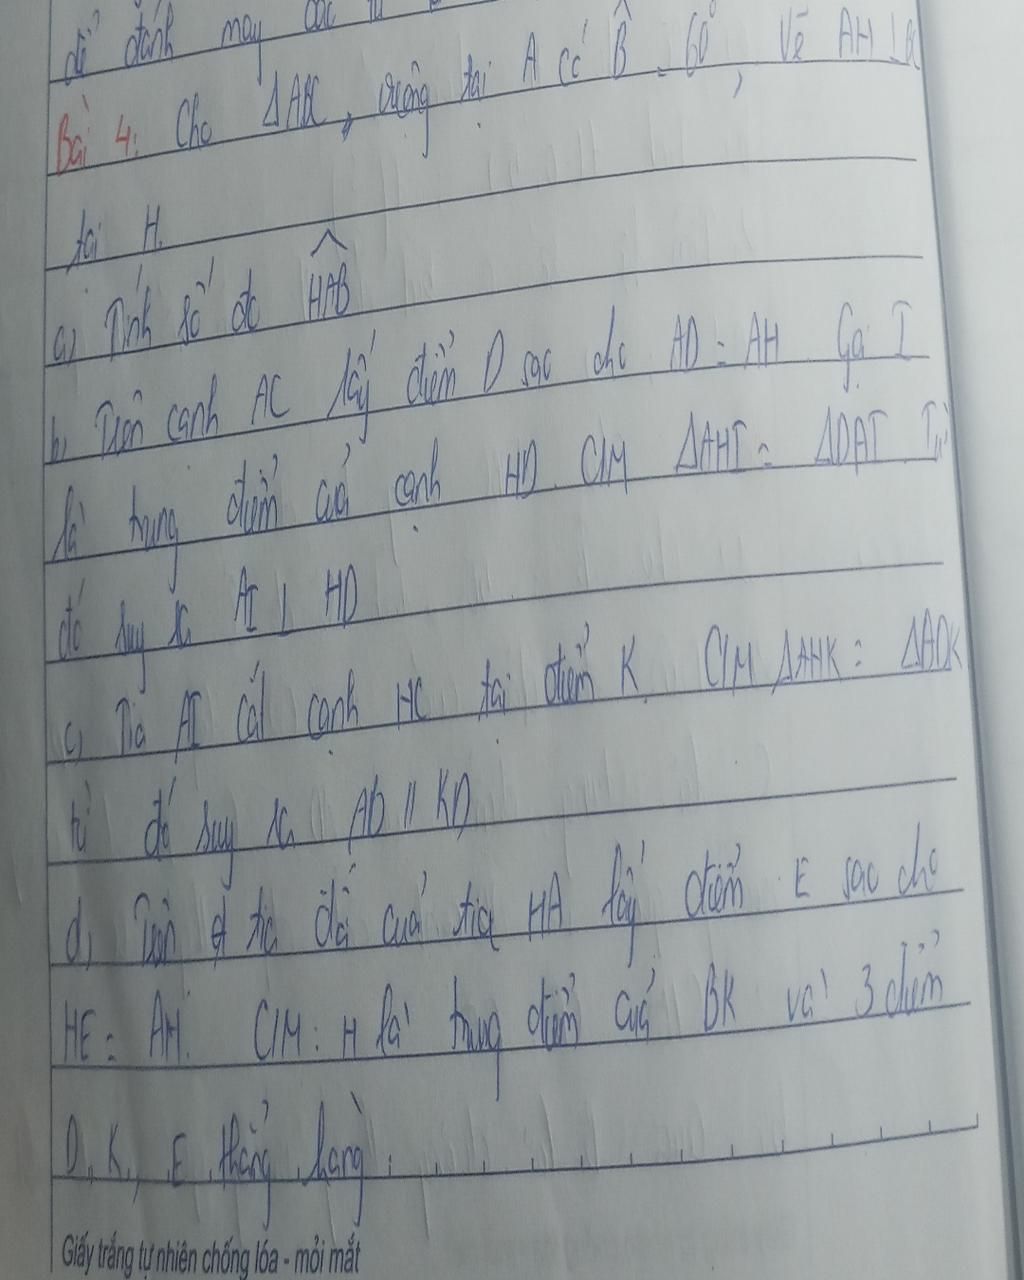 để đánh may các từ
Bài 4: Cho ΔABC, vuông tại A có B̂ = 60°, Vẽ AH ⊥ BC
tại H.
a, Tính số đo HAB
b, Trên cạnh AC lấy điểm D sao cho AD = AH Gọi I
là trung điểm cuả cạnh HD. C/M ΔAHI = ΔDAI Từ
đó suy ra AI ⊥ HD
c, Tia AI cắt cạnh HC tại điểm K. C/M ΔAHK = ΔADK
từ đó suy ra AB // KD
d, Trên tia đối cuả tia HA lấy điểm E sao cho
HE = AH. C/M: H là trung điểm cuả BK và 3 điểm
D, K, E thẳng hàng.
Giấy trắng tự nhiên chống lóa - mỏi mắt